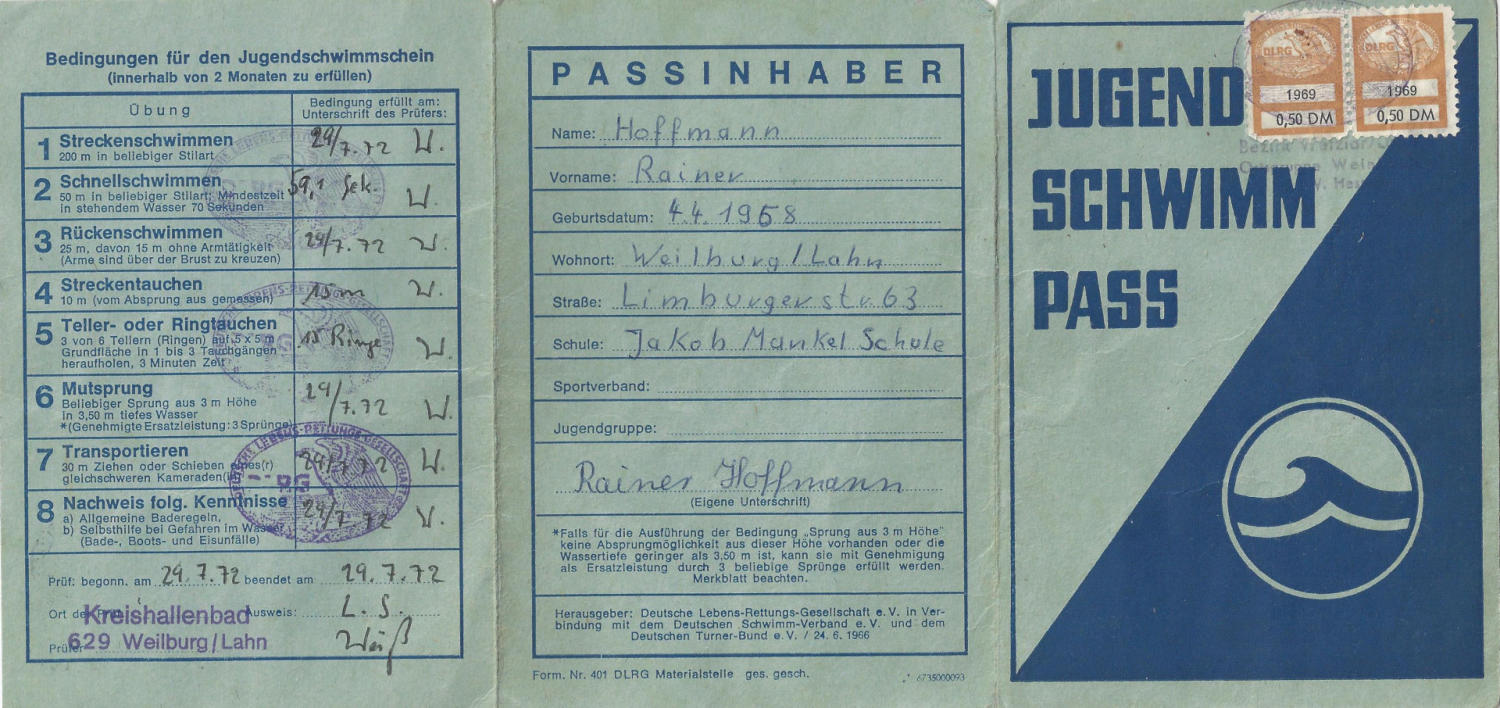 Bedingungen für den Jugendschwimmschein
(innerhalb von 2 Monaten zu erfüllen)
Übung
Bedingung erfüllt am:
Unterschrift des Prüfers:
1 Streckenschwimmen
200 m in beliebiger Stilart
29/7.72 W.
2 Schnellschwimmen
50 m in beliebiger Stilart; Mindestzeit
in stehendem Wasser 70 Sekunden
59,1 Sek. W.
3 Rückenschwimmen
25 m, davon 15 m ohne Armtätigkeit
(Arme sind über der Brust zu kreuzen)
29/7.72 W.
4 Streckentauchen
10 m (vom Absprung aus gemessen)
15 m W.
5 Teller- oder Ringtauchen
3 von 6 Tellern (Ringen) auf 5 x 5 m
Grundfläche in 1 bis 3 Tauchgängen
heraufholen, 3 Minuten Zeit
15 Ringe W.
6 Mutsprung
Beliebiger Sprung aus 3 m Höhe
in 3,50 m tiefes Wasser
*(Genehmigte Ersatzleistung: 3 Sprünge)
29/7.72 W.
7 Transportieren
30 m Ziehen oder Schieben eines(r)
gleichschweren Kameraden(in)
29/7.72 W.
8 Nachweis folg. Kenntnisse
a) Allgemeine Baderegeln,
b) Selbsthilfe bei Gefahren im Wasser
(Bade-, Boots- und Eisunfälle)
29/7.72 W.
DEUTSCHE LEBENS-RETTUNGS-GESELLSCHAFT
Prüf: begonn. am 29.7.72 beendet am 29.7.72
Ort der Prüf. Kreishallenbad Ausweis: L. S.
Prüfer 629 Weilburg/Lahn Weiß
PASSINHABER
Name: Hoffmann
Vorname: Rainer
Geburtsdatum: 4.4.1958
Wohnort: Weilburg/Lahn
Straße: Limburgerstr. 63
Schule: Jakob Mankel Schule
Sportverband:
Jugendgruppe:
Rainer Hoffmann
(Eigene Unterschrift)
*Falls für die Ausführung der Bedingung „Sprung aus 3 m Höhe"
keine Absprungmöglichkeit aus dieser Höhe vorhanden oder die
Wassertiefe geringer als 3,50 m ist, kann sie mit Genehmigung
als Ersatzleistung durch 3 beliebige Sprünge erfüllt werden.
Merkblatt beachten.
Herausgeber: Deutsche Lebens-Rettungs-Gesellschaft e. V. in Ver-
bindung mit dem Deutschen Schwimm-Verband e. V. und dem
Deutschen Turner-Bund e. V. / 24. 6. 1966
Form. Nr. 401 DLRG Materialstelle ges. gesch.
6735000093
JUGEND
SCHWIMM
PASS
DLRG
1969
0,50 DM
DLRG
1969
0,50 DM
Bezirk Wetzlar
Ortsgruppe